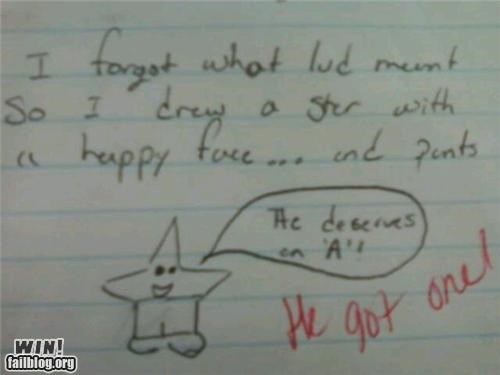 I forgot what lud meant
So I drew a ster with
a happy face... and pants
He deserves
an "A"!
He got one!
WIN!
failblog.org